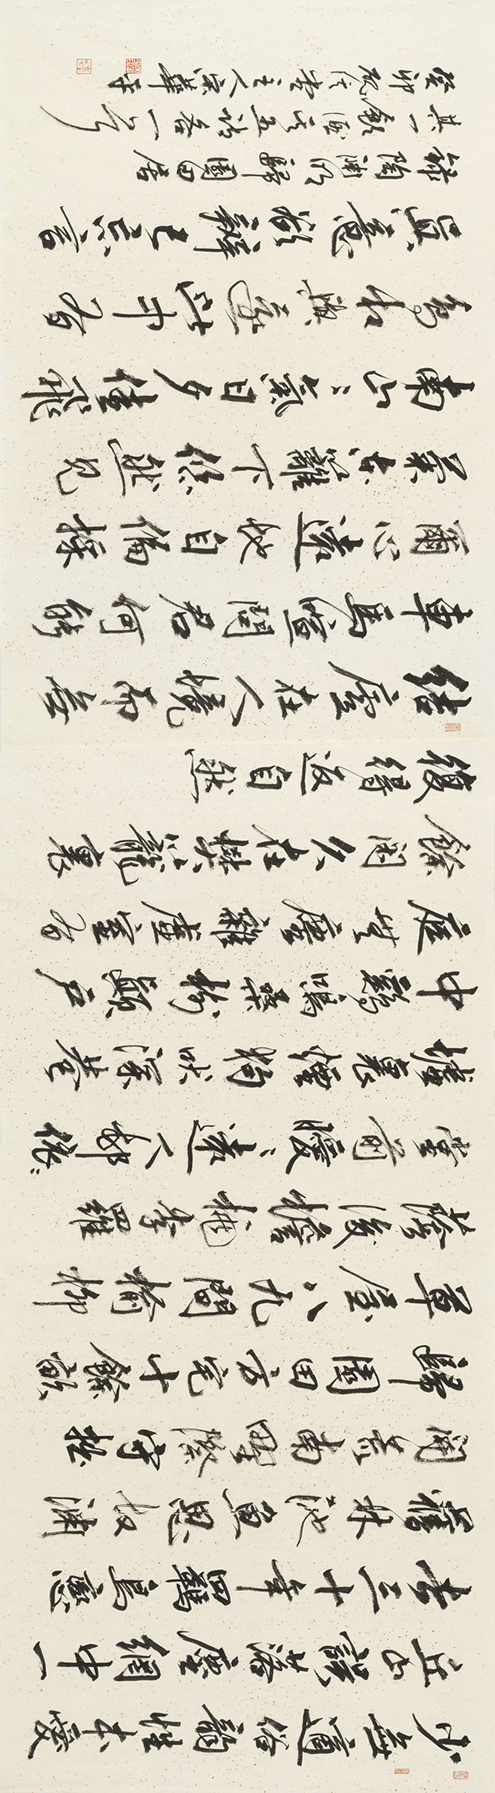 少無適俗韻性本愛
丘山誤落塵網中一
去三十年羈鳥戀
舊林池魚思故淵
開荒南野際守拙
歸園田方宅十餘畝
草屋八九間榆柳
蔭後檐桃李羅
堂前曖〻遠人邨依〻
墟裏煙狗吠深巷
中雞鳴桑樹顛戶
庭無塵雜虛室有
餘閑久在樊籠裏
復得返自然
結廬在人境而無
車馬喧問君何能
爾心遠地自偏採
菊東籬下悠然見
南山〻氣日夕佳飛
鳥相與還此中有
真意欲辨已忘言
錄陶淵明歸園田居
其一飲酒其五詩各一首
癸卯 主人